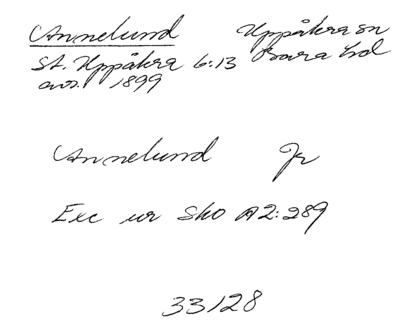 Annelund Uppåkra sn
St. Uppåkra 6:13 Bara hd
avs. 1899
Annelund Jr
Exc ur Sko A2:289
33128